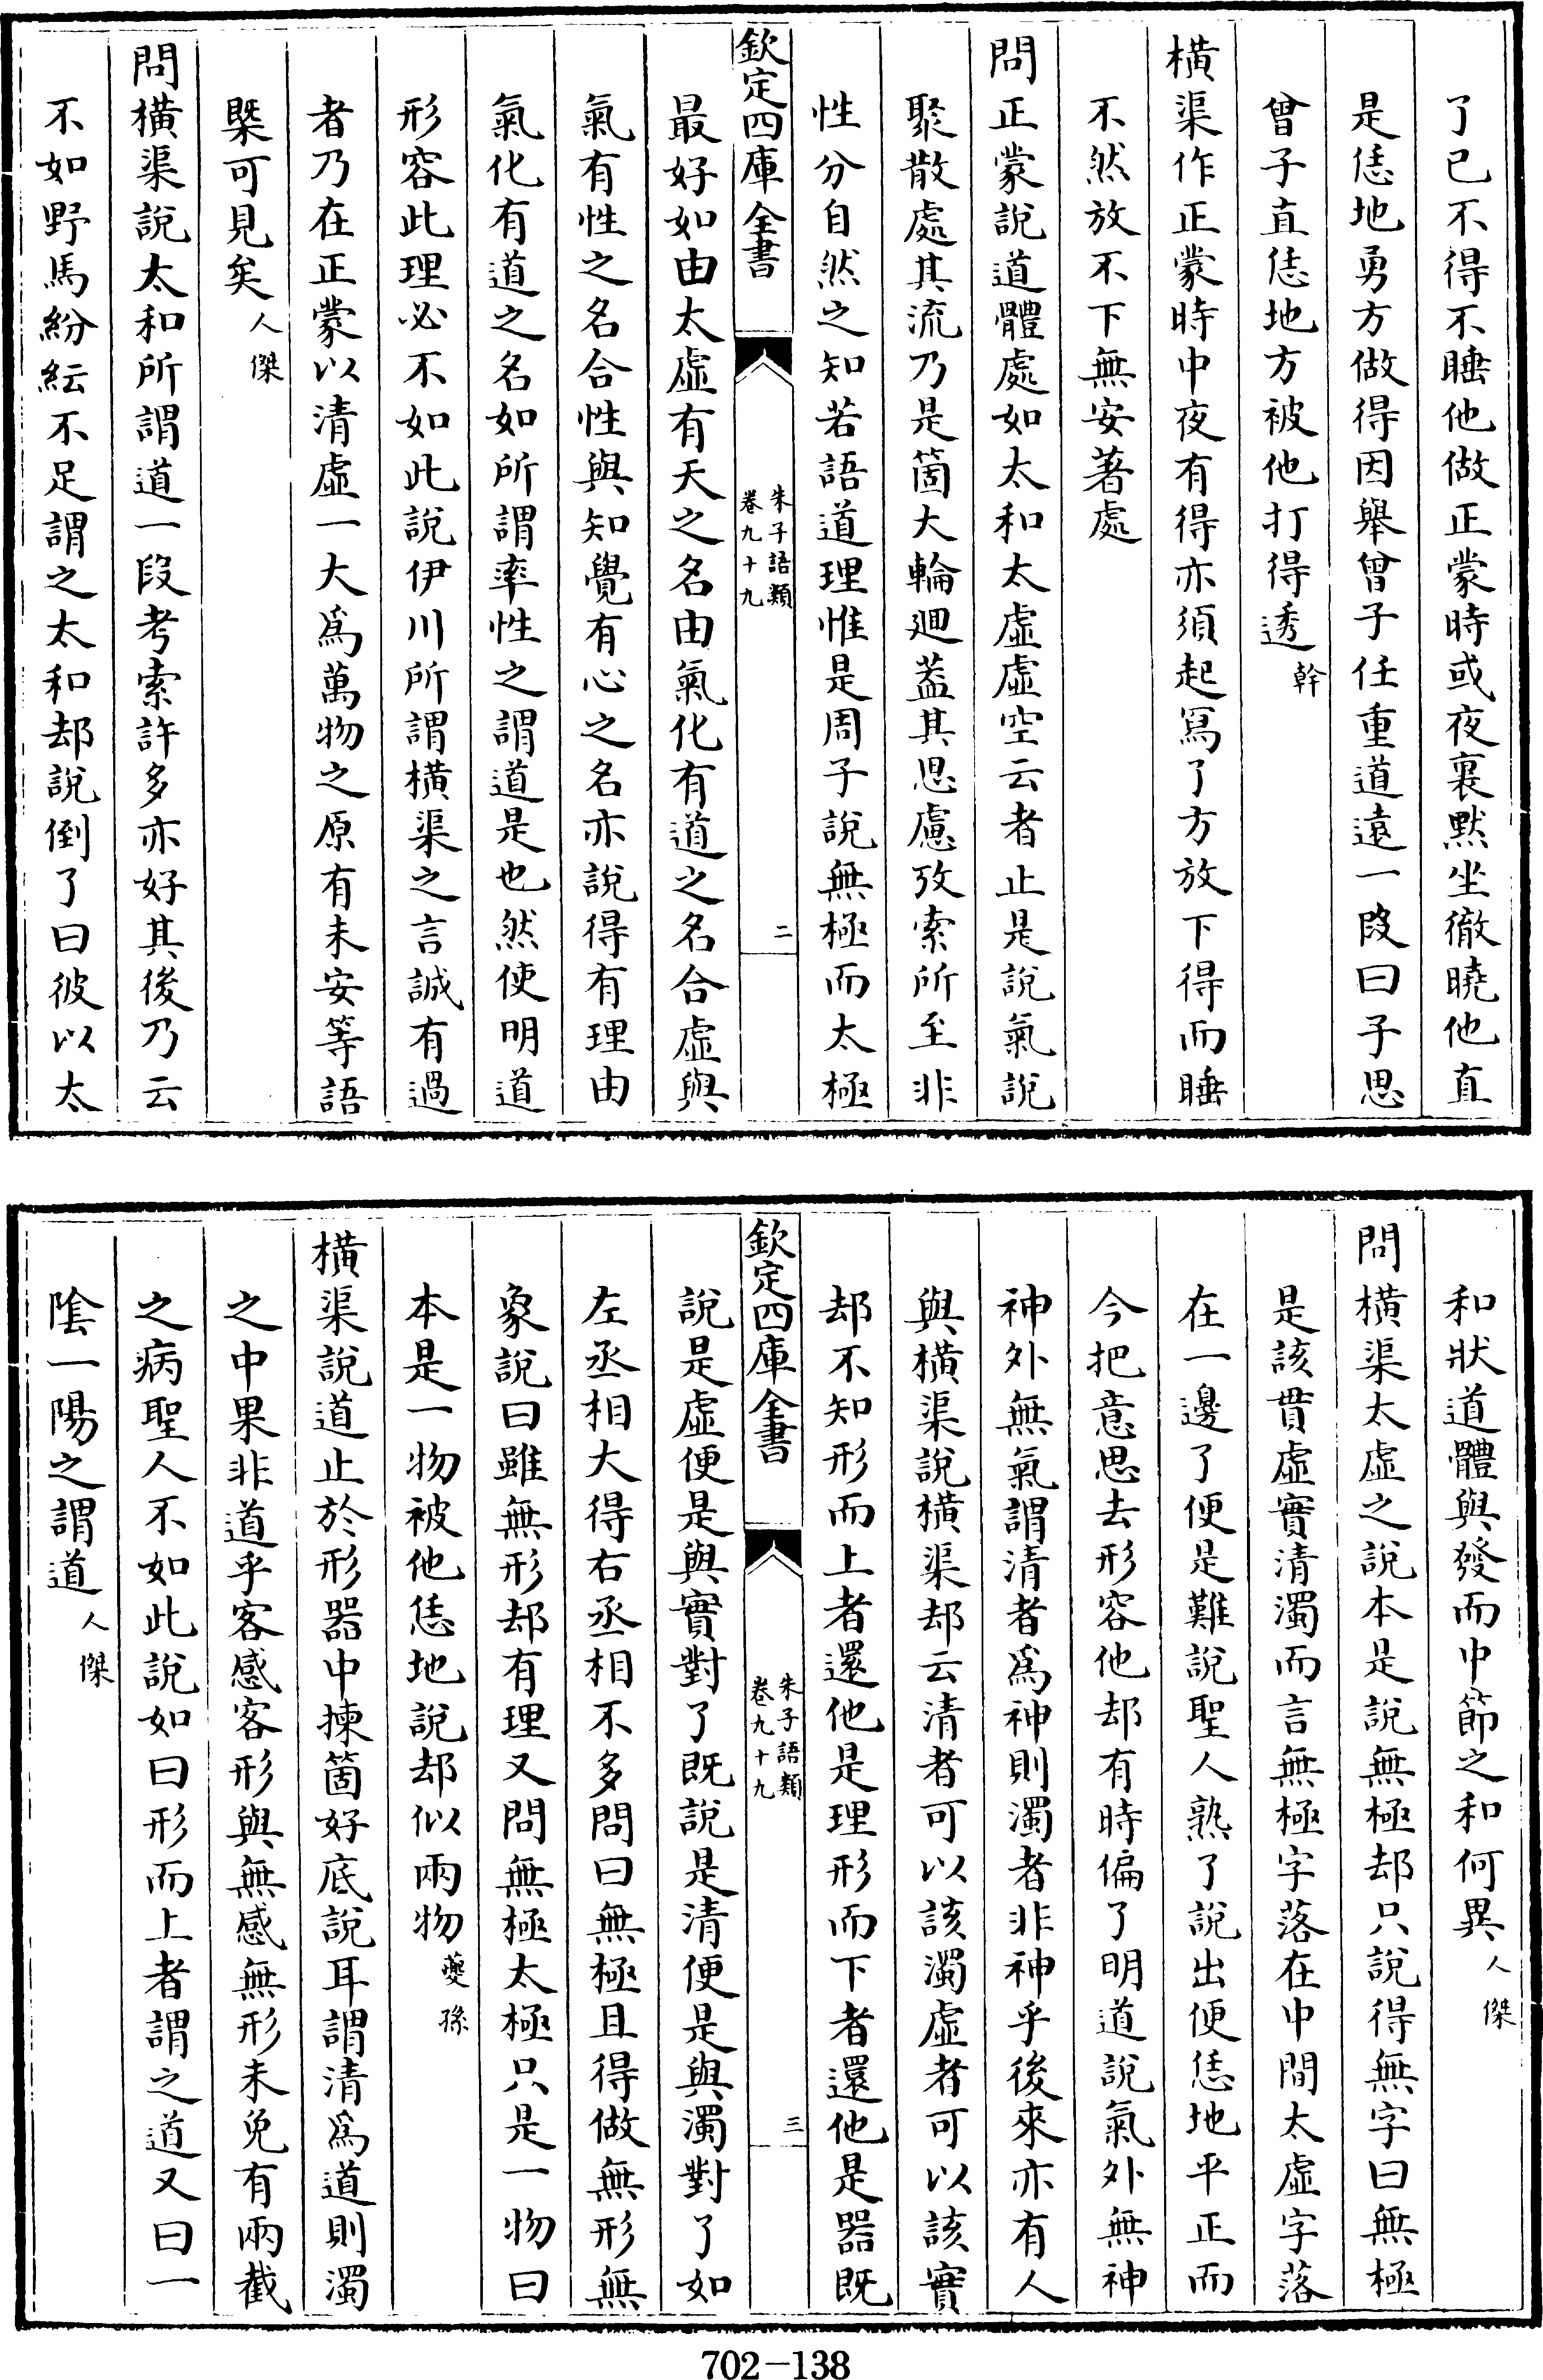 了已不得不睡他做正蒙時或夜裏默坐徹曉他直
是恁地勇方做得因舉曾子任重道遠一段曰子思
曾子直恁地方被他打得透幹
橫渠作正蒙時中夜有得亦須起寫了方放下得而睡
不然放不下無安著處
問正蒙說道體處如太和太虛虛空云者止是說氣說
聚散處其流乃是箇大輪廻葢其思慮攷索所至非
性分自然之知若語道理惟是周子說無極而太極
欽定四庫全書
朱子語類
卷九十九
二
最好如由太虛有天之名由氣化有道之名合虛與
氣有性之名合性與知覺有心之名亦說得有理由
氣化有道之名如所謂率性之謂道是也然使明道
形容此理必不如此說伊川所謂橫渠之言誠有過
者乃在正蒙以清虛一大爲萬物之原有未安等語
槩可見矣人傑
問橫渠說太和所謂道一段考索許多亦好其後乃云
不如野馬紛紜不足謂之太和却說倒了曰彼以太
和狀道體與發而中節之和何異人傑
問橫渠太虛之說本是說無極却只說得無字曰無極
是該貫虛實清濁而言無極字落在中間太虛字落
在一邊了便是難說聖人熟了說出便恁地平正而
今把意思去形容他却有時偏了明道說氣外無神
神外無氣謂清者爲神則濁者非神乎後來亦有人
與橫渠說橫渠却云清者可以該濁虛者可以該實
却不知形而上者還他是理形而下者還他是器既
欽定四庫全書
朱子語類
卷九十九
三
說是虛便是與實對了既說是清便是與濁對了如
左丞相大得右丞相不多問曰無極且得做無形無
象說曰雖無形却有理又問無極太極只是一物曰
本是一物被他恁地說却似兩物夔孫
橫渠說道止於形器中揀箇好底說耳謂清爲道則濁
之中果非道乎客感客形與無感無形未免有兩截
之病聖人不如此說如曰形而上者謂之道又曰一
陰一陽之謂道人傑
702-138